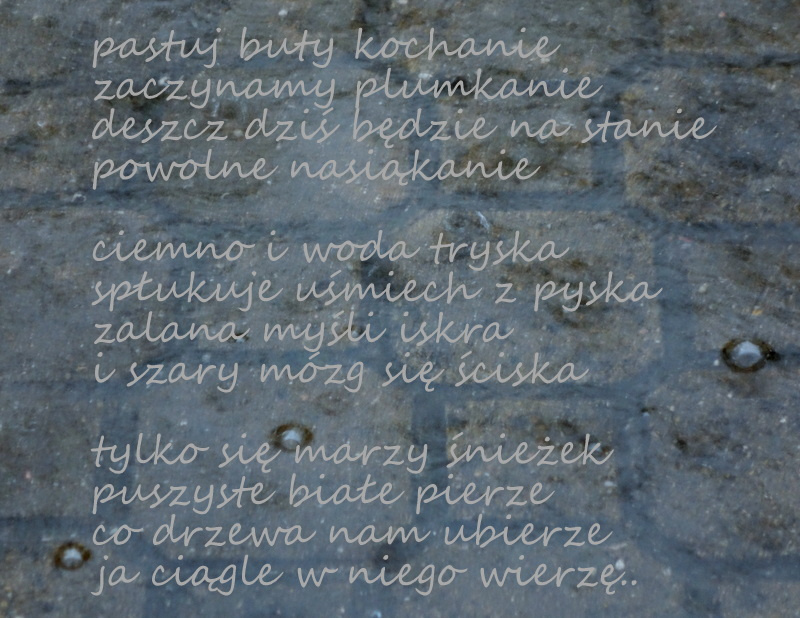 pastuj buty kochanie
zaczynamy plumkanie
deszcz dziś będzie na stanie
powolne nasiąkanie
ciemno i woda tryska
spłukuje uśmiech z pyska
zalana myśli iskra
i szary mózg się ściska
tylko się marzy śnieżek
puszyste białe pierze
co drzewa nam ubierze
ja ciągle w niego wierzę..